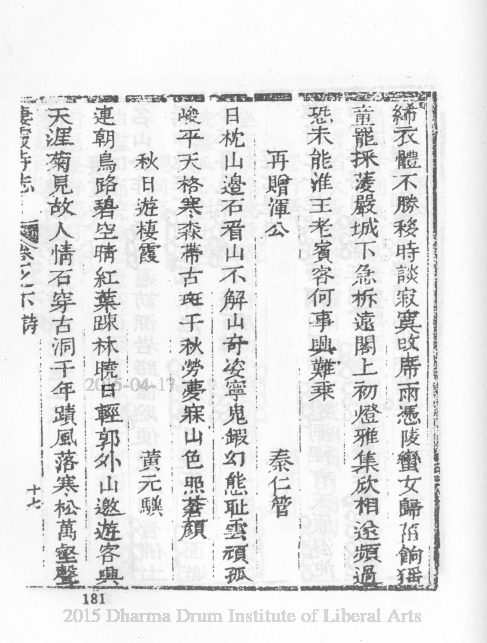 絺衣體不勝移時談寂寞改席雨憑陵蠻女歸俗餉猺
童罷採菱嚴城下急柝遠閣上初燈雅集欣相送頻過
恐未能淮王老賓客何事興難乗
再贈渾公 秦仁管
日枕山邊石看山不解山奇姿寧鬼蝦幻態耻雲頑孤
峻平天格寒森帶古斑千秋勞夢寐山色照蒼顔
秋日遊棲霞 黃元驥
連朝鳥路碧空晴紅葉踈林曉日輕郭外山邀遊客興
天涯菊見故人情石穿古洞千年蹟風落寒松萬壑聲
棲霞寺志 卷之下詩 十七
181
2015-04-17
2015 Dharma Drum Institute of Liberal Arts